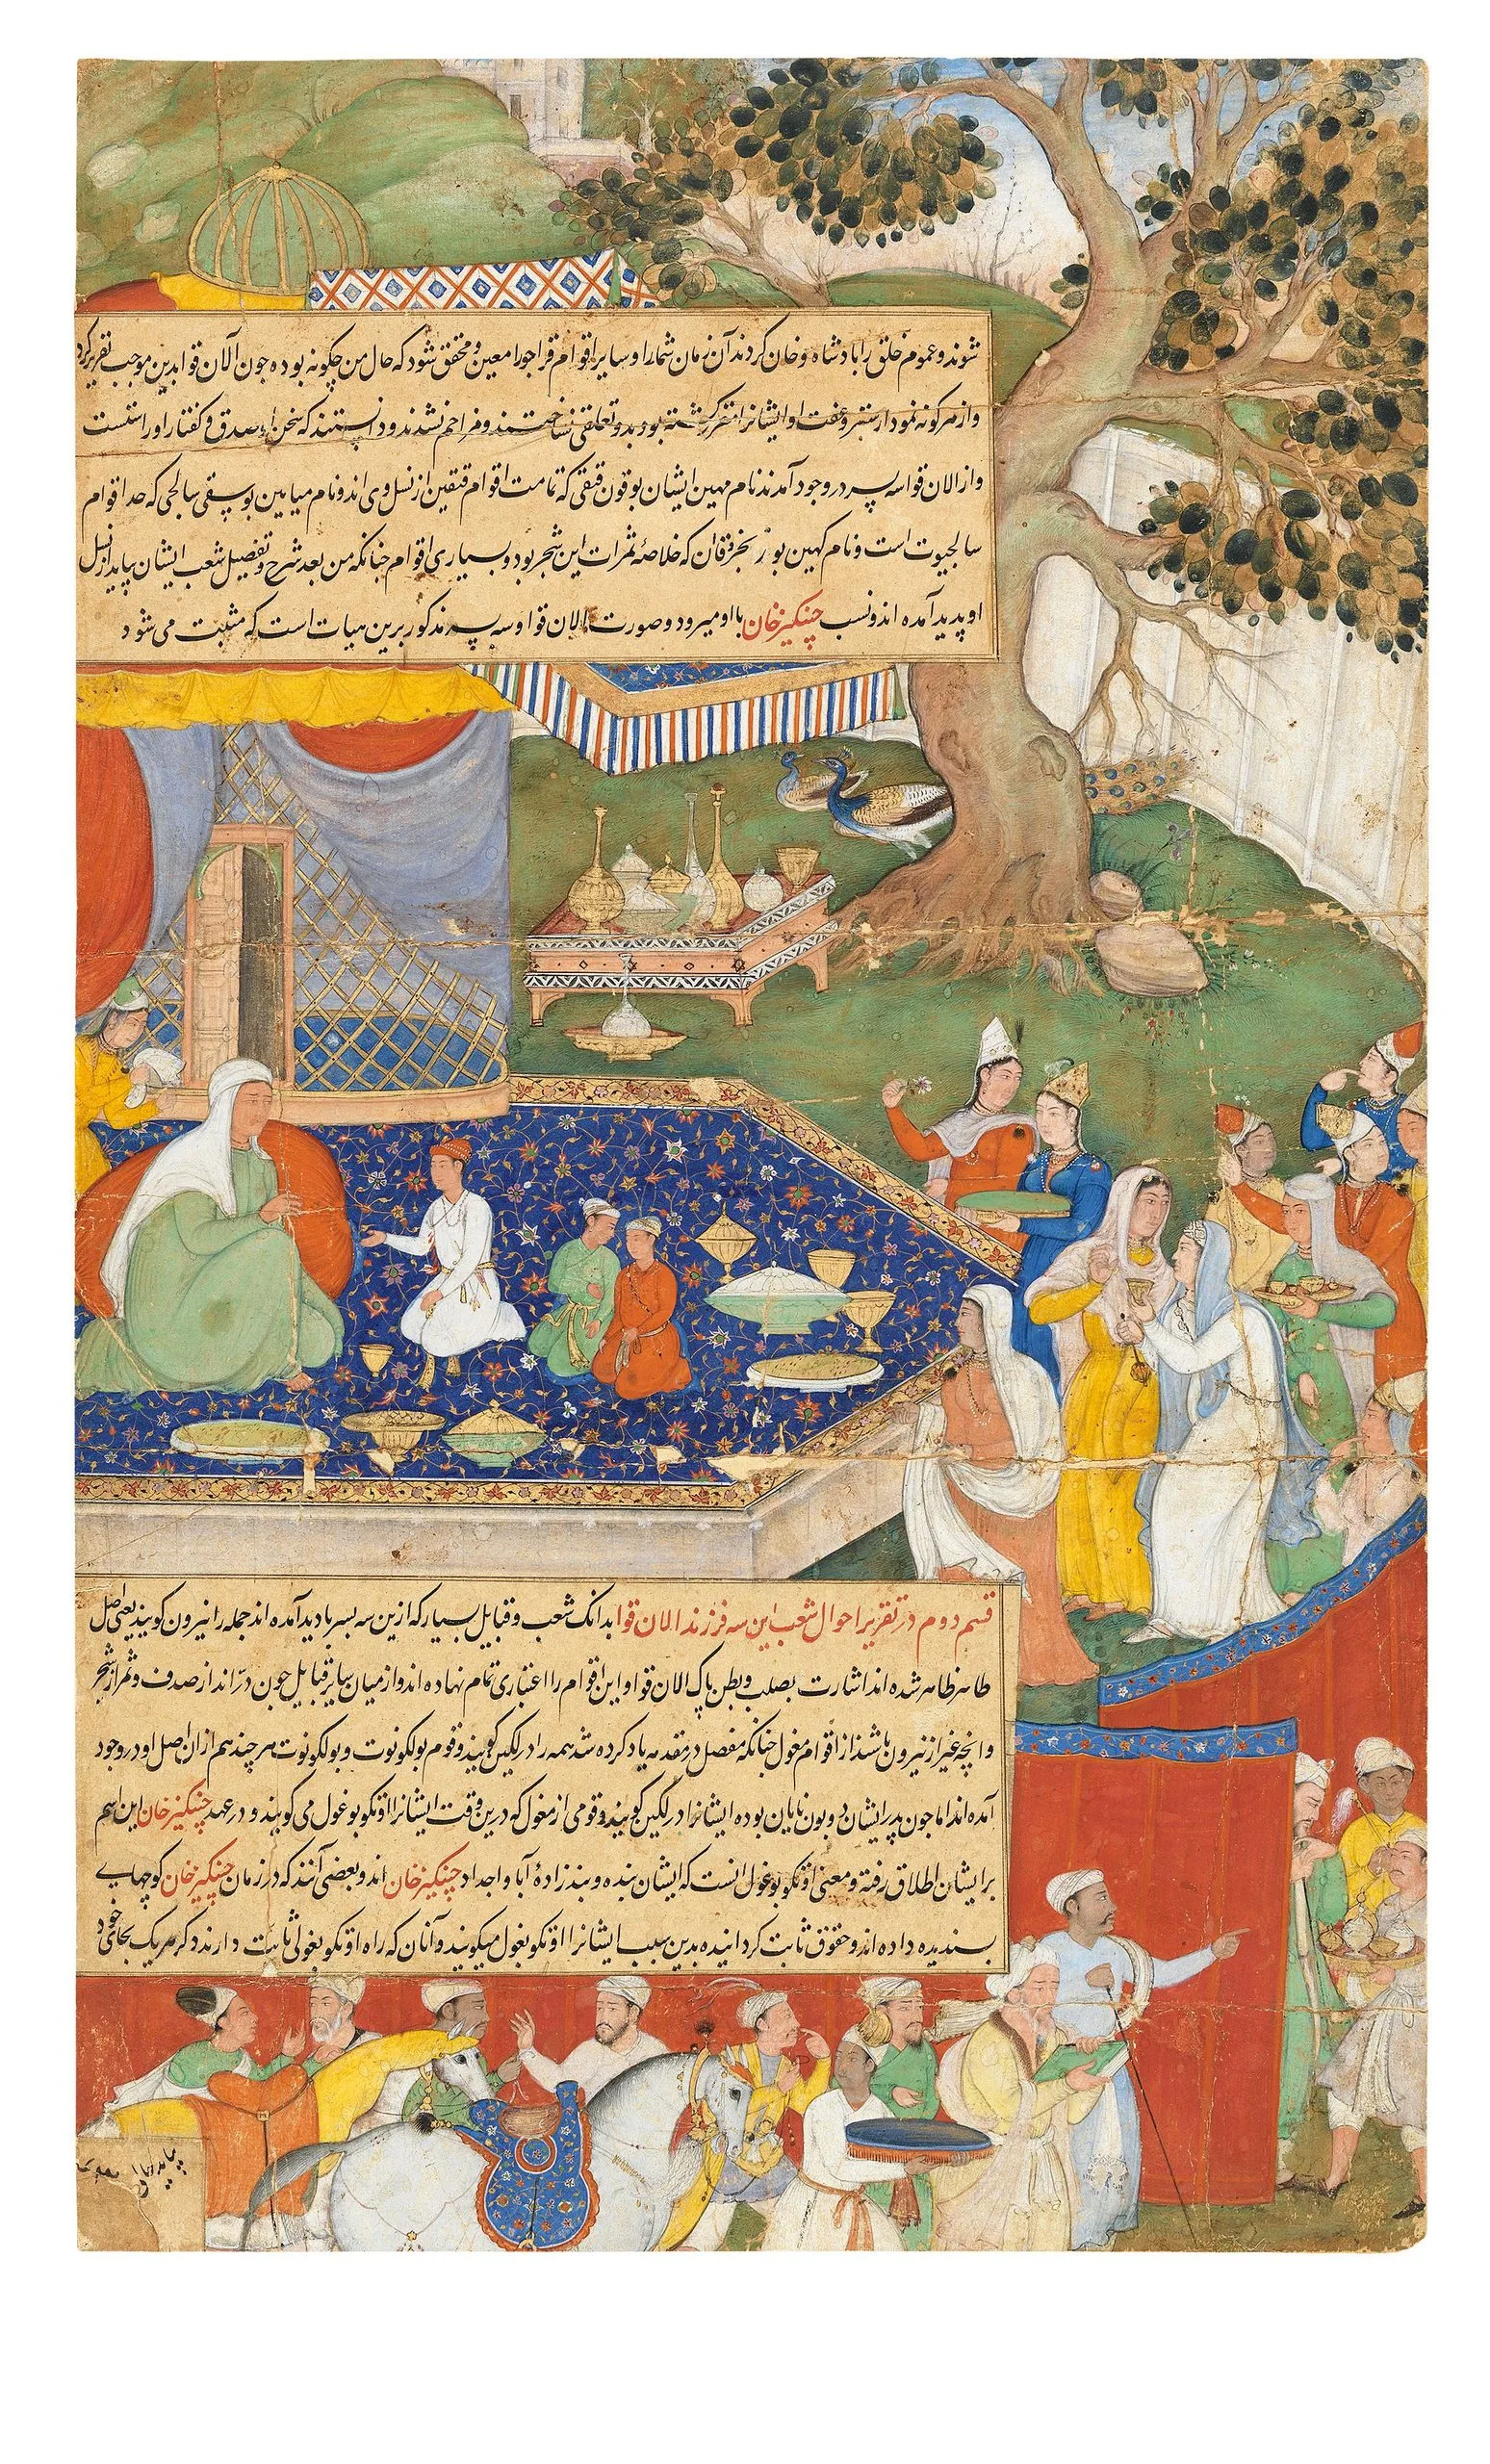 شوند و عموم خلق را پادشاه و خان کردند آن زمان شما را و سایر اقوام قراجو را معین و محقق شود که حال من چکونه بوده جون آلان قوا بدین موجب تقریر کرد
و از هر کونه نمودار ستر و عفت او ایشانرا مقرر کشته بود بدو تعلقی نساختند و مزاحم نشدند و دانستند که سخن او صدق و کفتار او راستست
و از الان قوا سه پسر در وجود آمدند نام مهین ایشان بوقون قتقی که تمامت اقوام قتقین از نسل وی اند و نام میابین بوسقی سالجی که جد اقوام
سالجیوت است و نام کهین بودنجرقان که خلاصهٔ ثمرات این شجر بود و بسیاری اقوام جنانکه من بعد شرح و تفصیل شعب ایشان بیاید از نسل
او پدید آمده اند و نسب چنکیز خان با او میرود و صورت الان قوا و سه پسر مذکور برین هیات است که مثبت می شود
قسم دوم در تقریر احوال شعب این سه فرزند الان قوا بدانک شعب و قبایل بسیار که ازین سه پسر بادید آمده اند جمله را نیرون کویند یعنی اصل
طاهر ظاهر شده اند اشارت بصلب و بطن پاک الان قوا و این اقوام را اعتباری تمام نهاده اند و از میان سایر قبایل جون در اند از صدف و ثمر از شجر
و انچه غیر از نیرون باشند از اقوام مغول جنانکه مفصل در مقدمه یاد کرده شد همه را درلکین کویند و قوم بولکونوت و بولکونوت هر چند هم از ان اصل او در وجود
آمده اند اما جون پدر ایشان دوبون بایان بوده ایشانرا درلکین کویند و قومی از مغول که درین وقت ایشانرا اونکو بوغول می کویند و در عهد چنکیز خان این اسم
بر ایشان اطلاق رفته و معنی اونکو بوغول انست که ایشان بنده و بنده زادهٔ آبا و اجداد چنکیز خان اند و بعضی آنند که در زمان چنکیز خان کوچهای
پسندیده داده اند و حقوق ثابت کردانیده بدین سبب ایشانرا اونکو بغول میکویند و آنان که راه اونکو بغولی ثابت دارند ذکر هر یک بجای خود